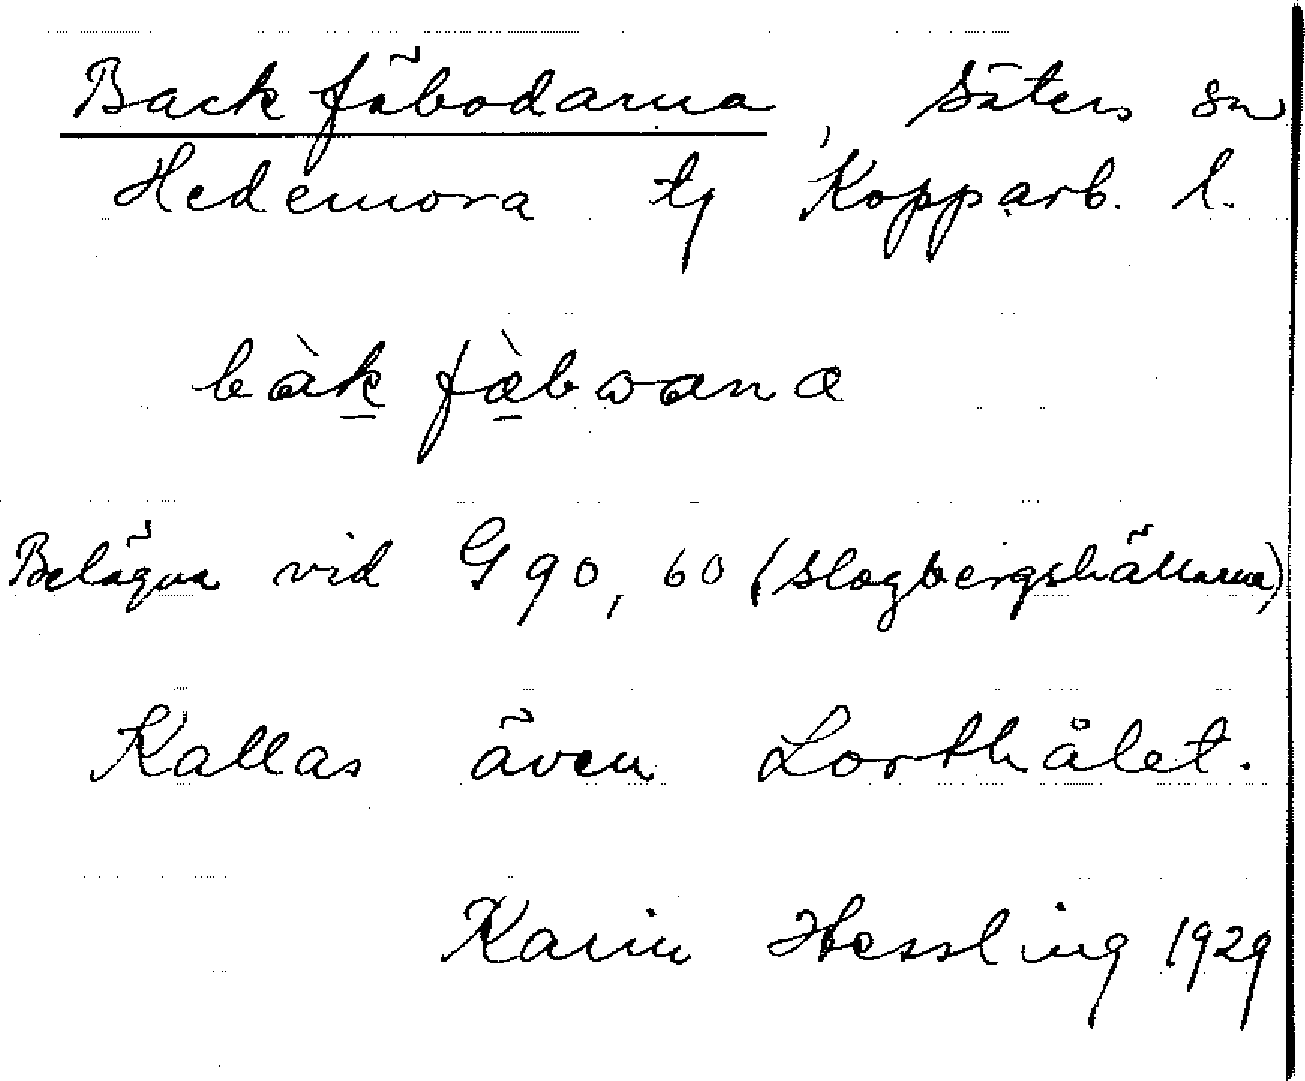 Backfäbodarna, Säters sn
Hedemora tg Kopparb. l.
bàk fæ̀bωana
Belägna vid G 90, 60 (Slogbergshällarna)
Kallas även Lorthålet.
Karin Hessling 1929